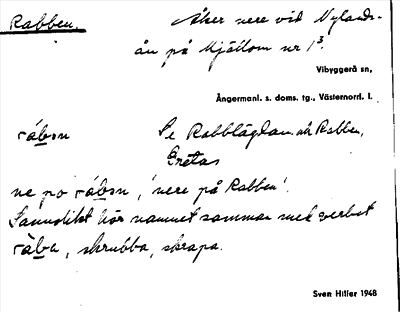 Rabben.
Åker nere vid Nylands-
ån på Mjällom nr 1³.
Vibyggerå sn,
Ångermanl. s. doms. tg., Västernorrl. l.
ràbɒn Se Rabbtägdan och Rabben,
Gretas
ne po ràbɒn, 'nere på Rabben'.
Sannolikt hör namnet samman med verbet
ràba, skrubba, skrapa.
Sven Hiller 1948